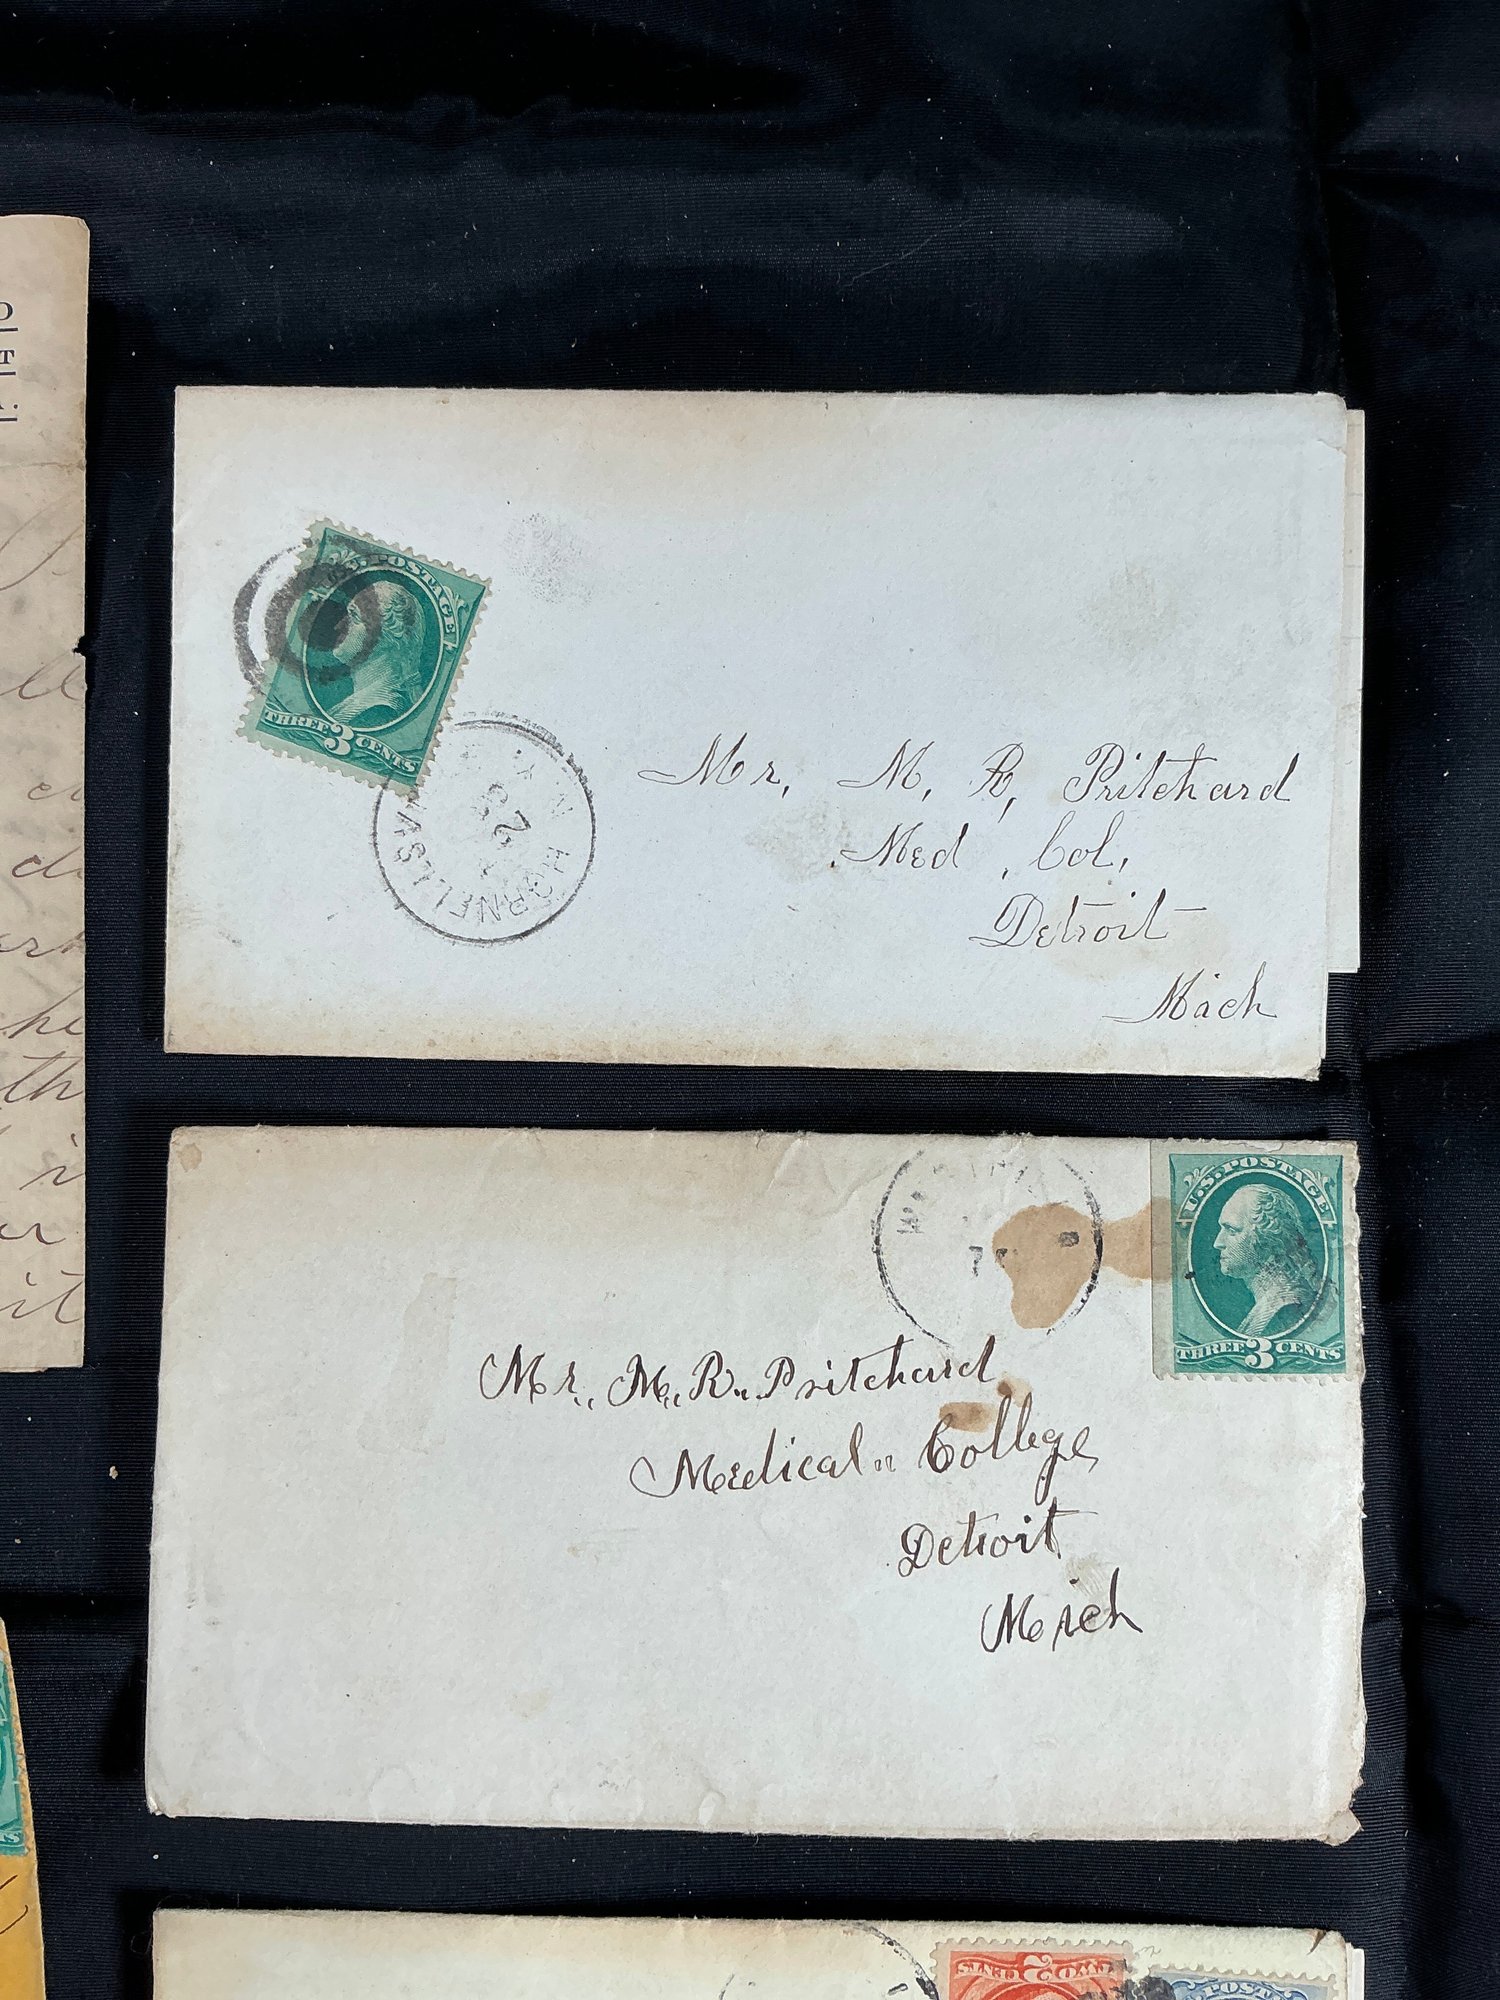 U.S. POSTAGE
THREE 3 CENTS
HORNELLSV
N.Y.
28
Mr, M, R, Pritchard
Med, Col,
Detroit
Mich
U.S. POSTAGE
THREE 3 CENTS
Mr,, M,, R,, Pritchard
Medical,, College
Detroit
Mich
TWO 2 CENTS
POSTAGE
ll
he
th
it